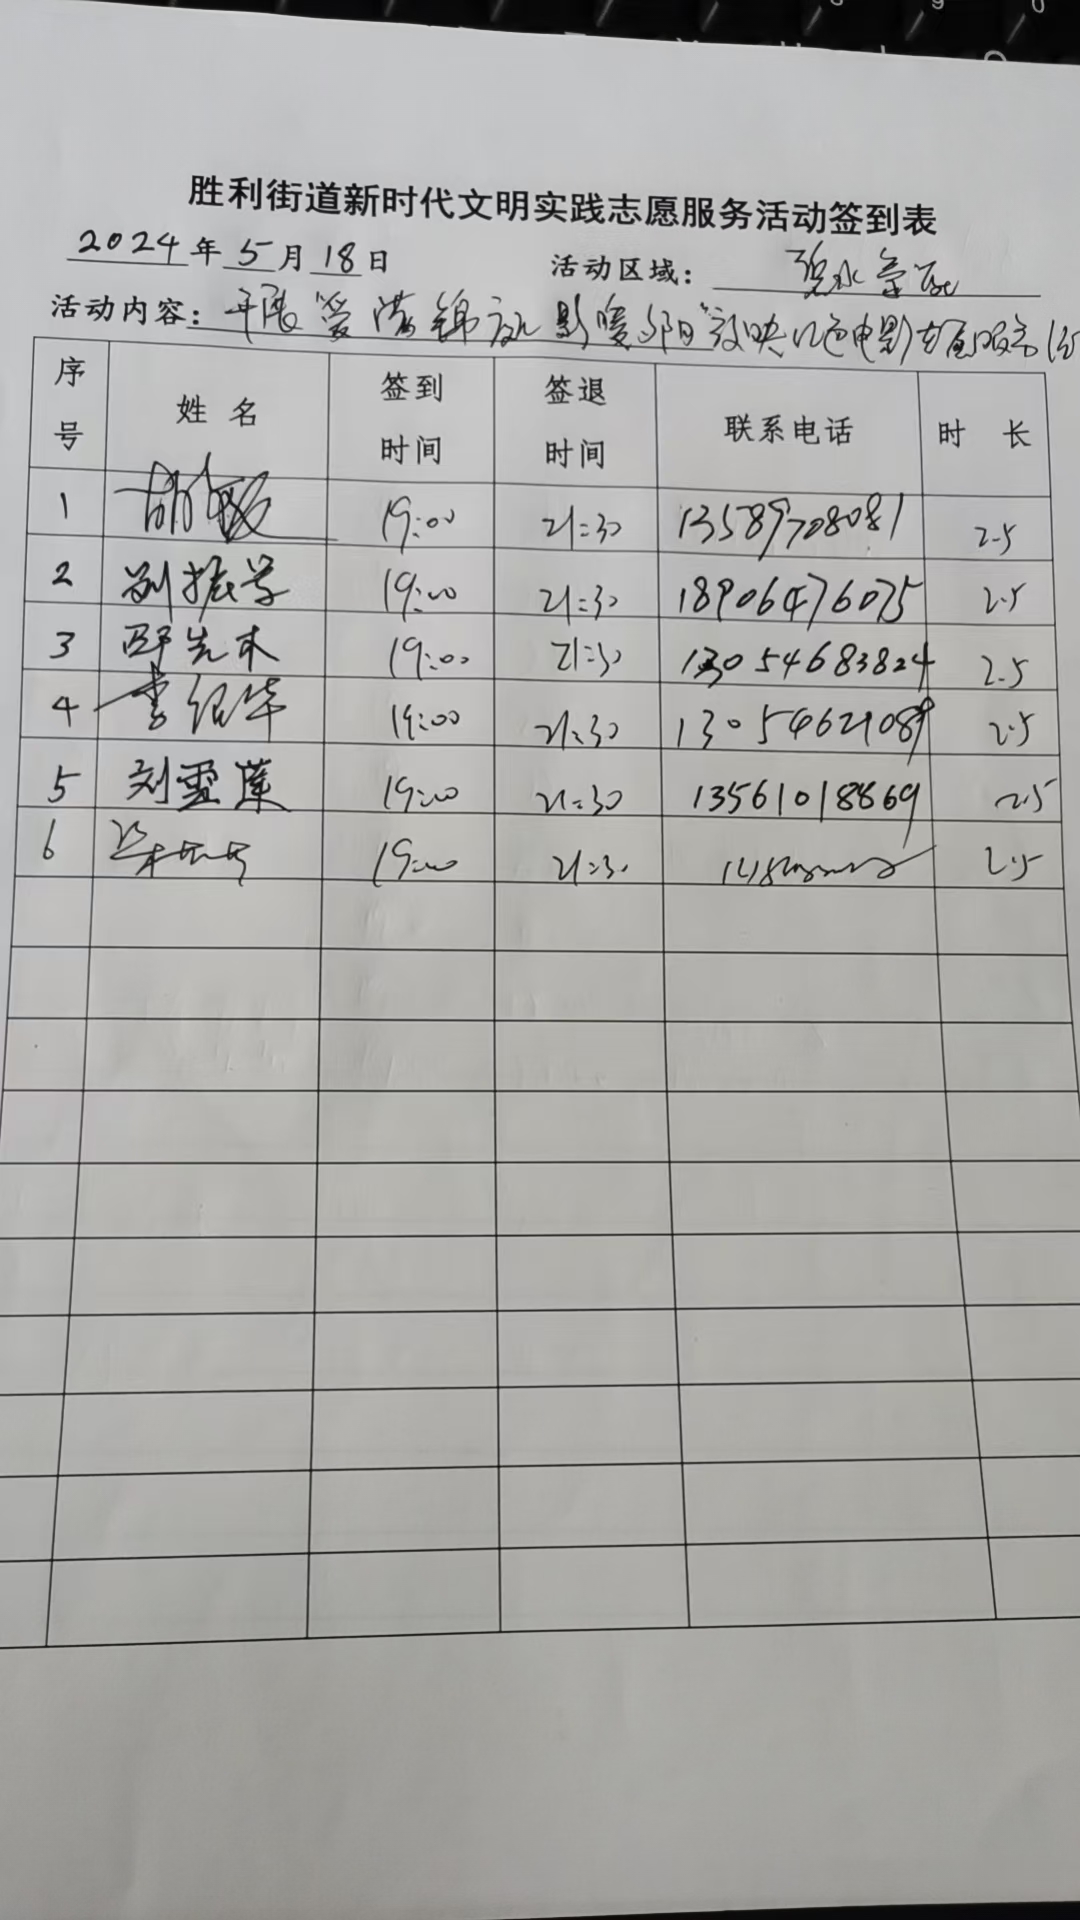 胜利街道新时代文明实践志愿服务活动签到表
2024年5月18日 活动区域: 碧水
活动内容: 开展"爱满锦苑 影暖夕阳"放映红色电影志愿服务活
序号 姓名 签到时间 签退时间 联系电话 时长
1 19:00 21:30 13589708081 2.5
2 刘振学 19:00 21:30 18906476075 2.5
3 邵先木 19:00 21:30 13054683824 2.5
4 李绍华 19:00 21:30 13054621089 2.5
5 刘雪莲 19:00 21:30 13561018869 2.5
6 19:00 21:30 2.5